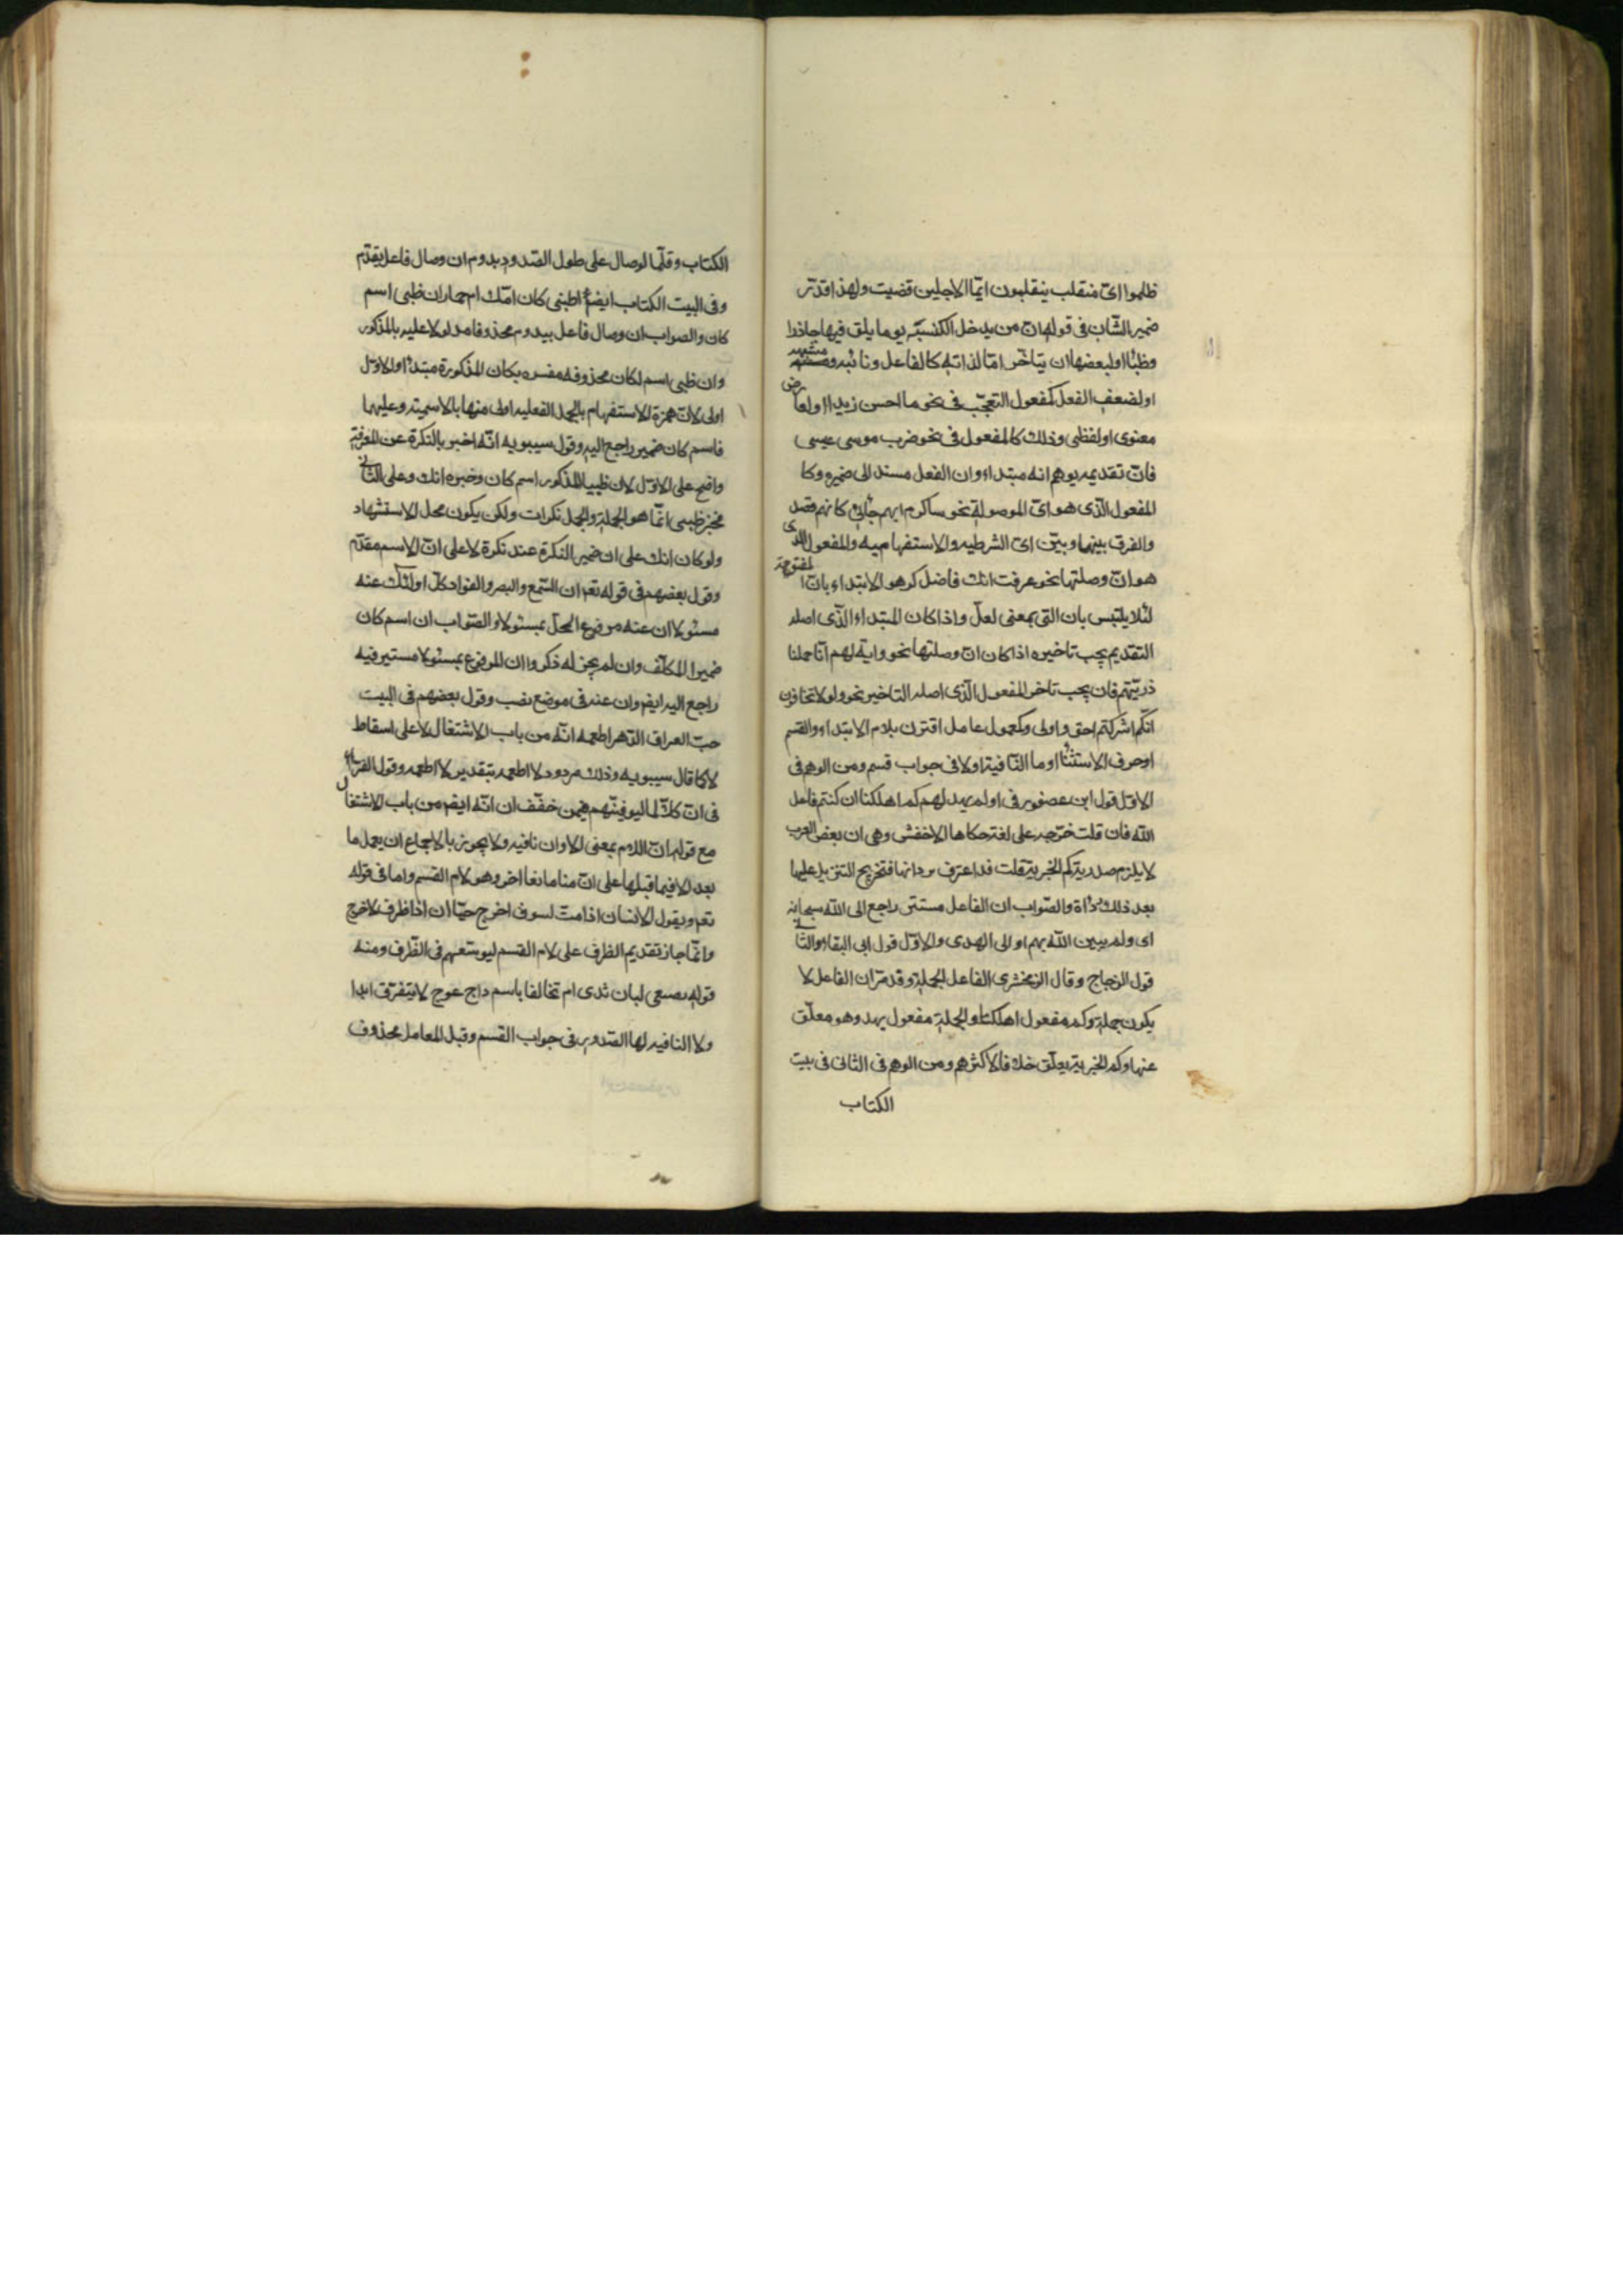 ظلموا اىّ منقلب ينقلبون ايّما الاجلين قضيت ولهذا قدّر
ضمير الشّان فى قوله انّ من يدخل الكنسيّه يوما يلق فيها جاذرا
وظبأ او لبعضها ان يتاخّر امّا لذاته كالفاعل ونائبه ومشبهه
او لضعف الفعل كمفعول التعجّب فى نحو ما احسن زيدا او لعارض
معنوى او لفظى وذلك كالمفعول فى نحو ضرب موسى عيسى
فانّ تقديمه يوهم انه مبتداء وان الفعل مسند الى ضميره وكا
المفعول الّذى هو اىّ الموصولة نحو ساكرم ايهم جائنى كانهم قصد
والفرق بينها وبيّن اىّ الشرطيه والاستفهاميه والمفعول الذى
هو انّ وصلتها نحو عرفت انك فاضل كرهو الابتداء بانّ المفتوحة
لئلا يلتبس بان التى بمعنى لعلّ واذا كان المبتداء الّذى اصله
التقديم يجب تاخيره اذا كان انّ وصلتها نحو واية لهم انّا حملنا
ذريّتهم فان يجب تاخر المفعول الّذى اصله التاخير نحو ولا تخافون
انّكم اشركتم احق واولى وكمعمول عامل اقترن بلام الابتداء والقسم
او حرف الاستثناء او ما النّافية او لا فى جواب قسم ومن الوهم فى
الاوّل قول ابن عصفور فى او لم يهد لهم كم اهلكنا ان كنتم فاعل
اللّه فان قلت خرّجه على لغة حكاها الاخفش وهى ان بعض العرب
لا يلزم صدرية كم الخبرية قلت قد اعترف بردائها فتخريج التنزيل عليها
بعد ذلك رداة والصّواب ان الفاعل مستتر راجع الى اللّه سبحانه
اى ولم يبين اللّه بهم او الى الهدى والاوّل قول ابى البقاء والثانى
قول الزجاج وقال الزمخشرى الفاعل الجملة وقد مرّ ان الفاعل لا
يكون جملة وكم مفعول اهلكنا والجملة مفعول يهد وهو معلّق
عنها وكم الخبرية يعلّق فالاكثرهم ومن الوهم فى الثانى فى بيت
الكتاب
الكتاب وقلّما لوصال على طول الصّدود يدوم ان وصال فاعل يقدّم
وفى البيت الكتاب ايضا اظبى كان امّك ام حمار ان ظبى اسم
كان والصواب ان وصال فاعل بيدوم محذوفا مدلولا عليه بالمذكور
وان ظبى اسم لكان محذوفه مفسره بكان المذكورة مبتدأ والاوّل
اولى لانّ همزة الاستفهام بالجمل الفعليه اولى منها بالاسمية وعليهما
فاسم كان ضمير راجع اليه وقول سيبويه انّه اخبر بالنكرة عن المعرفة
واضح على الاوّل لان ظبيا المذكور اسم كان وخبره امك وعلى الثانى
فخبر ظبى انّما هو الجملة والجمل نكرات ولكن يكون محل الاستشهاد
ولو كان امك على ان ضمير النكرة عند نكرة لا على انّ الاسم مقدّم
وقول بعضهم فى قوله تعم ان السّمع والبصر والفواد كلّ اولئك عنه
مسئولا ان عنه مرفوع المحلّ بمسئولا والصّواب ان اسم كان
ضمير المكلّف وان لم يجز له ذكر وان المرفوع بمسئولا مستير فيه
راجع اليه ايضا وان عنه فى موضع نصب وقول بعضهم فى البيت
حبّ العراق الدّهر اطعمه انّه من باب الاشتغال لا على اسقاط
لا كما قال سيبويه وذلك مردود لا اطعمه بتقدير لا اطعمه وقول الفراء
فى انّ كلاّ لما ليوفينّهم فيمن خفّف ان انّه ايضا من باب الاشتغال
مع قوله انّ اللام بمعنى الا وان نافيه ولا يجوز بالاجماع ان يعمل ما
بعد الا فيما قبلها على انّ منا مانعا اخر وهو لام القسم واما فى قوله
تعم ويقول الانسان اذا متّ لسوف اخرج حيّا ان اذا ظرف لاخرج
وانّما جاز تقديم الظرف على لام القسم ليوسّعهم فى الظّرف ومنه
قوله رضيعى لبان ثدى ام تخالفا باسم داج عوج لا يتفرق ابدا
ولا النافيه لها الصّدور فى جواب القسم وقيل العامل محذوف